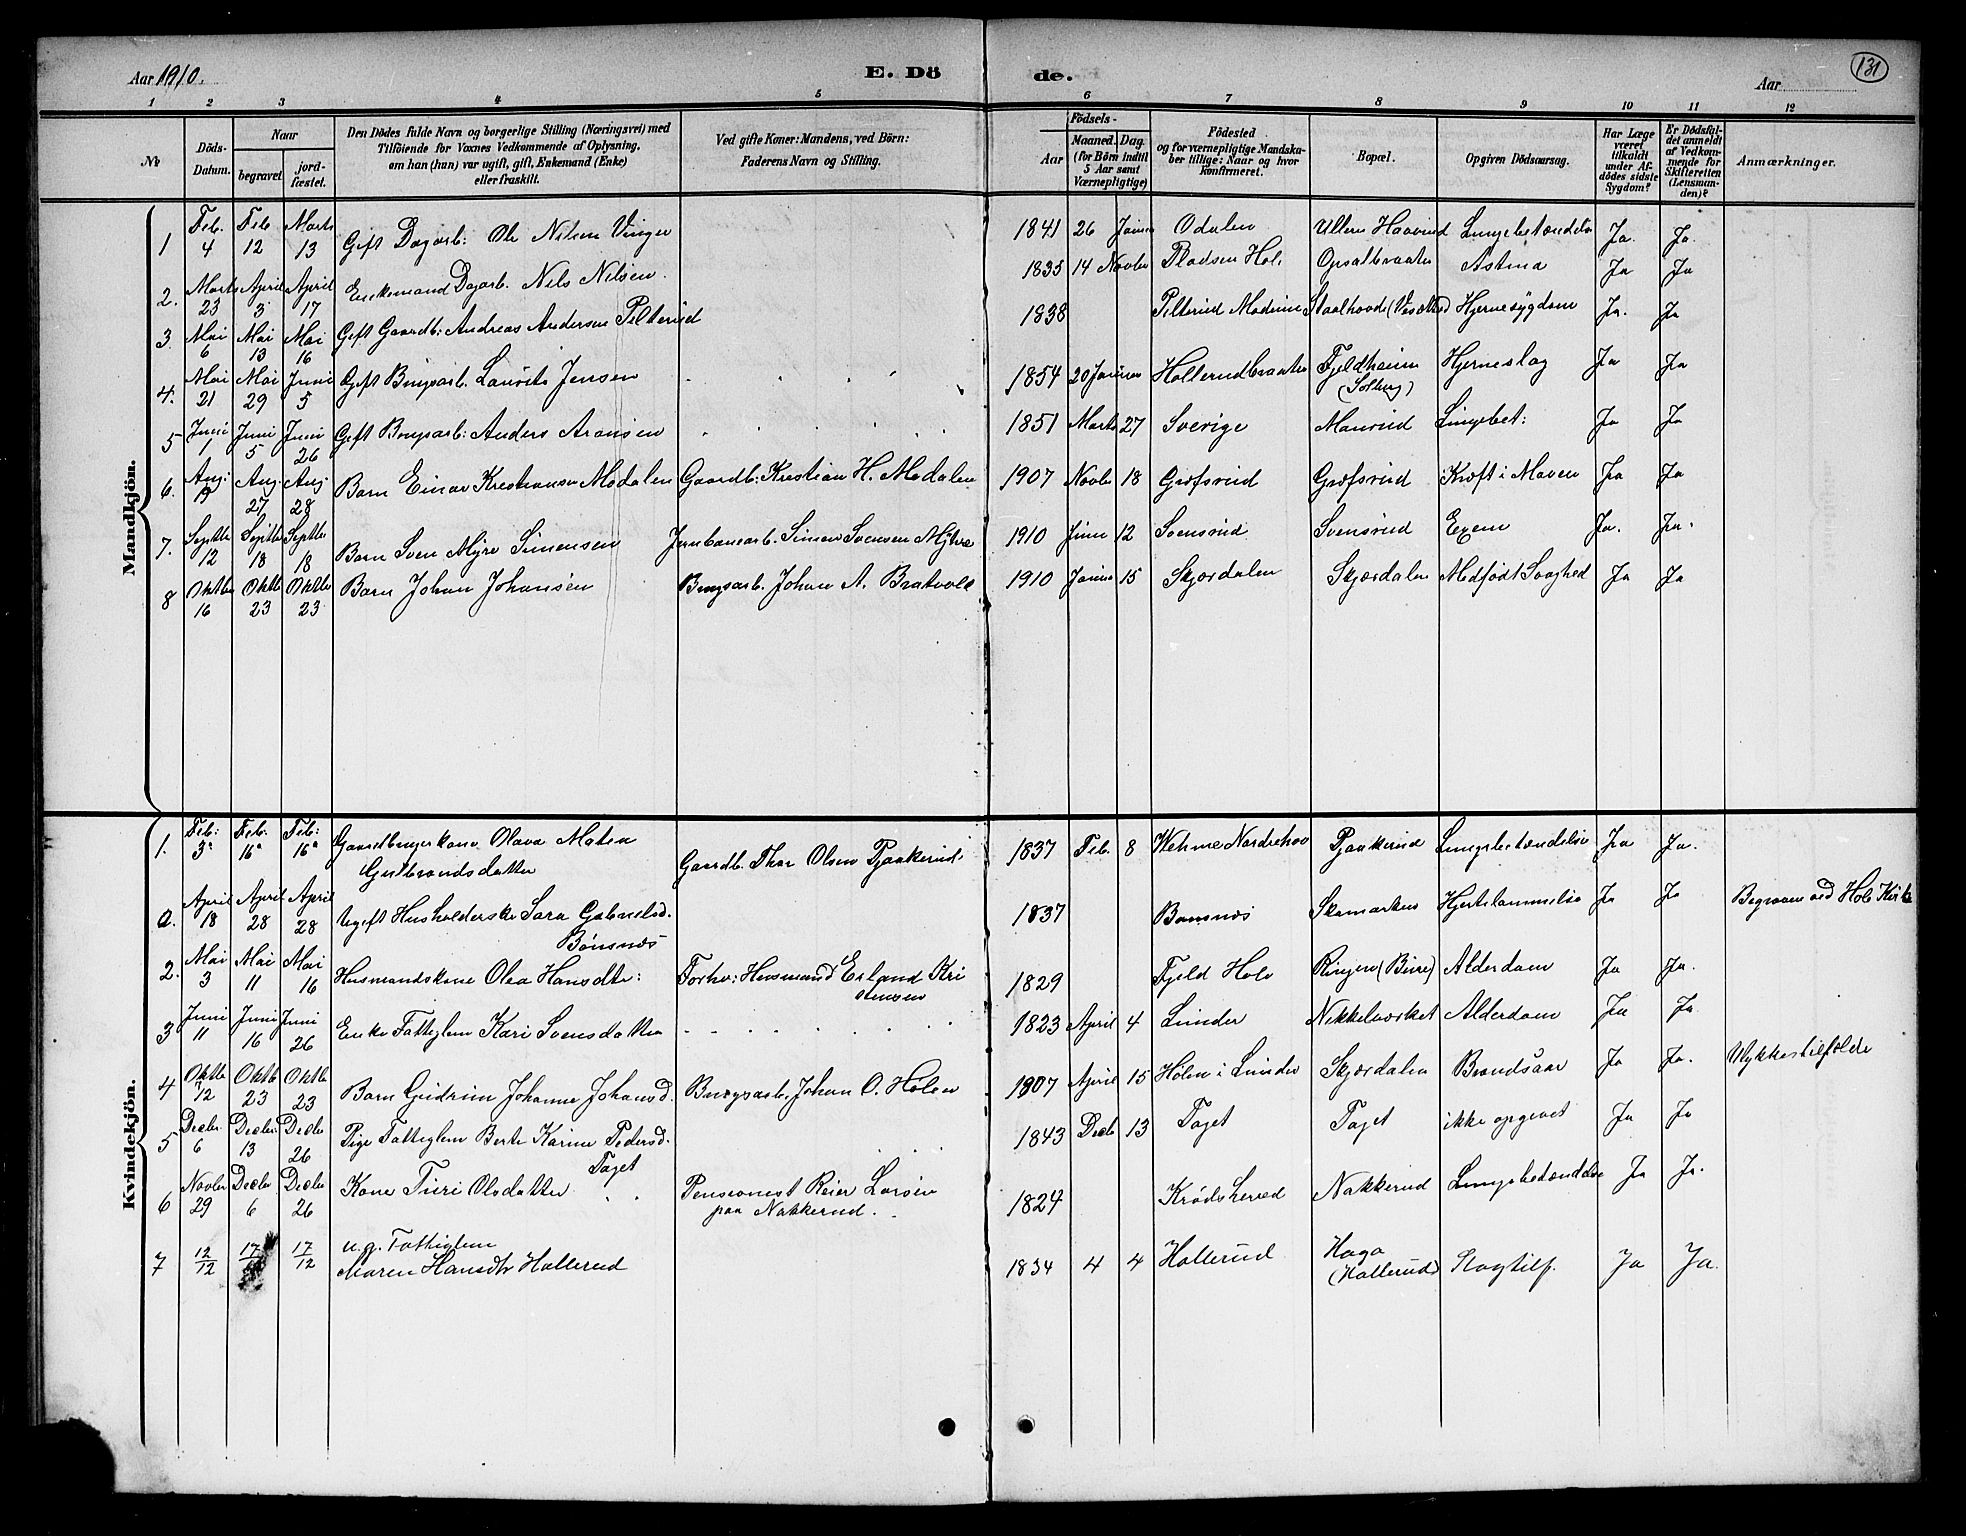 Aar 1910.
E. Dö de.
Aar
131
1 2 3 4 5 6 7 8 9 10 11 12
No
Döds-Datum.
Naar
begravet
jord-fæstet.
Den Dödes fulde Navn og borgerlige Stilling (Næringsvei) med
Tilföiende for Voxnes Vedkommende af Oplysning,
om han (hun) var ugift, gift, Enkemand (Enke)
eller fraskilt.
Ved gifte Koner: Mandens, ved Börn:
Faderens Navn og Stilling.
Födsels-
Aar
Maaned. Dag.
(for Börn indtil
5 Aar samt
Værnepligtige)
Födested
og for værnepligtige Mandska-
ber tillige: Naar og hvor
konfirmeret.
Bopæl.
Opgiven Dödsaarsag.
Har Læge
været
tilkaldt
under Af-
dödes sidste
Sygdom?
Er Dödsfal-
det anmeldt
af Vedkom-
mende for
Skifteretten
(Lensman-
den)?
Anmærkninger.
Mandkjön.
1 Feb. 4 Feb 12 Marts 13 Gift Dagarb: Ole Nilsen Vinger 1841 26 Odalen Ullern Lungebetændelse Ja. Ja.
2. Marts 23 April 3 April 17 Enkemand Dagarb. Nils Nilsen. 1835 14 Novbr Pladsen Hol. Opsalbraaten Astma Ja Ja
3. Mai 6 Mai 13 Mai 16 Gift Gaardb: Andreas Andersen Pilterud 1838 Pilterud Modum Hjernesygdom Ja. Ja
4. Mai 21 Mai 29 Juni 5 Gift Brugsarb. Laurits Jensen 1854 20 Hollerudbraaten Fjeldheim (Solberg) Hjerneslag Ja Ja
5 Juni 1 Juni 5 Juni 26 Gift Brugsarb: Anders Aronsen 1851 Marts 27 Sverige Manrud Lungebet: Ja Ja
6. Aug: 19 Aug. 27 Aug. 28 Barn Einar Kristiansen Modalen Gaardb: Kristian H. Modalen 1907 Novbr 18 Grøfsrud Grøfsrud Kræft i Maven Ja Ja
7. Septbr 12 Septbr 18 Septbr 18 Barn Sven Myre Simensen Jernbanearb. Simen Svensen Myhre 1910 Juni 12 Svensrud Svensrud Exem Ja. Ja.
8 Oktbr 16 Oktbr 23 Oktbr 23 Barn Johan Johansen Brugsarb. Johan A. Bratvold 1910 15 Skjærdalen Skjærdalen Medfødt Svaghed Ja Ja
Kvindekjön.
1. Feb: 3 Feb. 16 Feb: 16 Gaardbrugerkone Olava Maten
Gulbrandsdatter Gaardb. Thor Olsen Pjaakerud 1837 Feb. 8 Wehme Norderhov Pjaakerud Lungebetændelse Ja Ja.
a. April 18 April 28 April 28 Ugift Husholderske Sara Gabrielsd.
Bönsnæs 1837 Bønsnæs Skamarken Hjertelammelse Ja Ja Begraven ved Hole Kirke
2. Mai 3 Mai 11 Mai 16 Husmandskone Olea Hansdtr: Forhv: Husmand Erland Kri
stensen 1829 Fjeld Hole Ringen (Bure) Alderdom Ja Ja.
3 Juni 11 Juni 16 Juni 26 Enke Fattiglem Kari Svensdatter 1823 April 4 Lunder Nikkelverket Alderdom Ja Ja
4 Oktbr 12 Oktbr 23 Oktbr 23 Barn Gudrun Johanne Johansd. Brugsarb. Johan O. Hølen 1907 April 15 Hølen i Lunder Skjærdalen Brandsaar Ja Ja. Ulykkestilfælde
5 Decbr 6 Decbr 13 Decbr 26 Pige Fattiglem Berte Karine Pedersd.
Faget 1843 Decb 13 Faget Faget ikke opgivet Ja Ja
6 Novbr 29 Decbr 6 Decbr 26 Kone Turi Olsdatter Pensionist Reier Larsen
paa Nakkerud. 1824 Krødsherred Nakkerud Lungebetændelse Ja Ja.
7 12/12 17/12 17/12 u.g. Fattiglem
Maren Hansdtr Hollerud 1834 4 4 Hollerud Haga
(Hollerud) Slagtilf. Ja Ja.